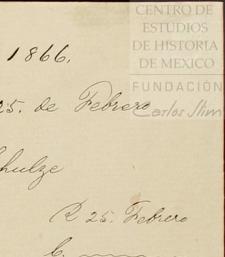 CENTRO DE
ESTUDIOS
DE HISTORIA
DE MEXICO
FUNDACIÓN
Carlos Slim
1866.
25. de Febrero
hulze
R 25. Febrero